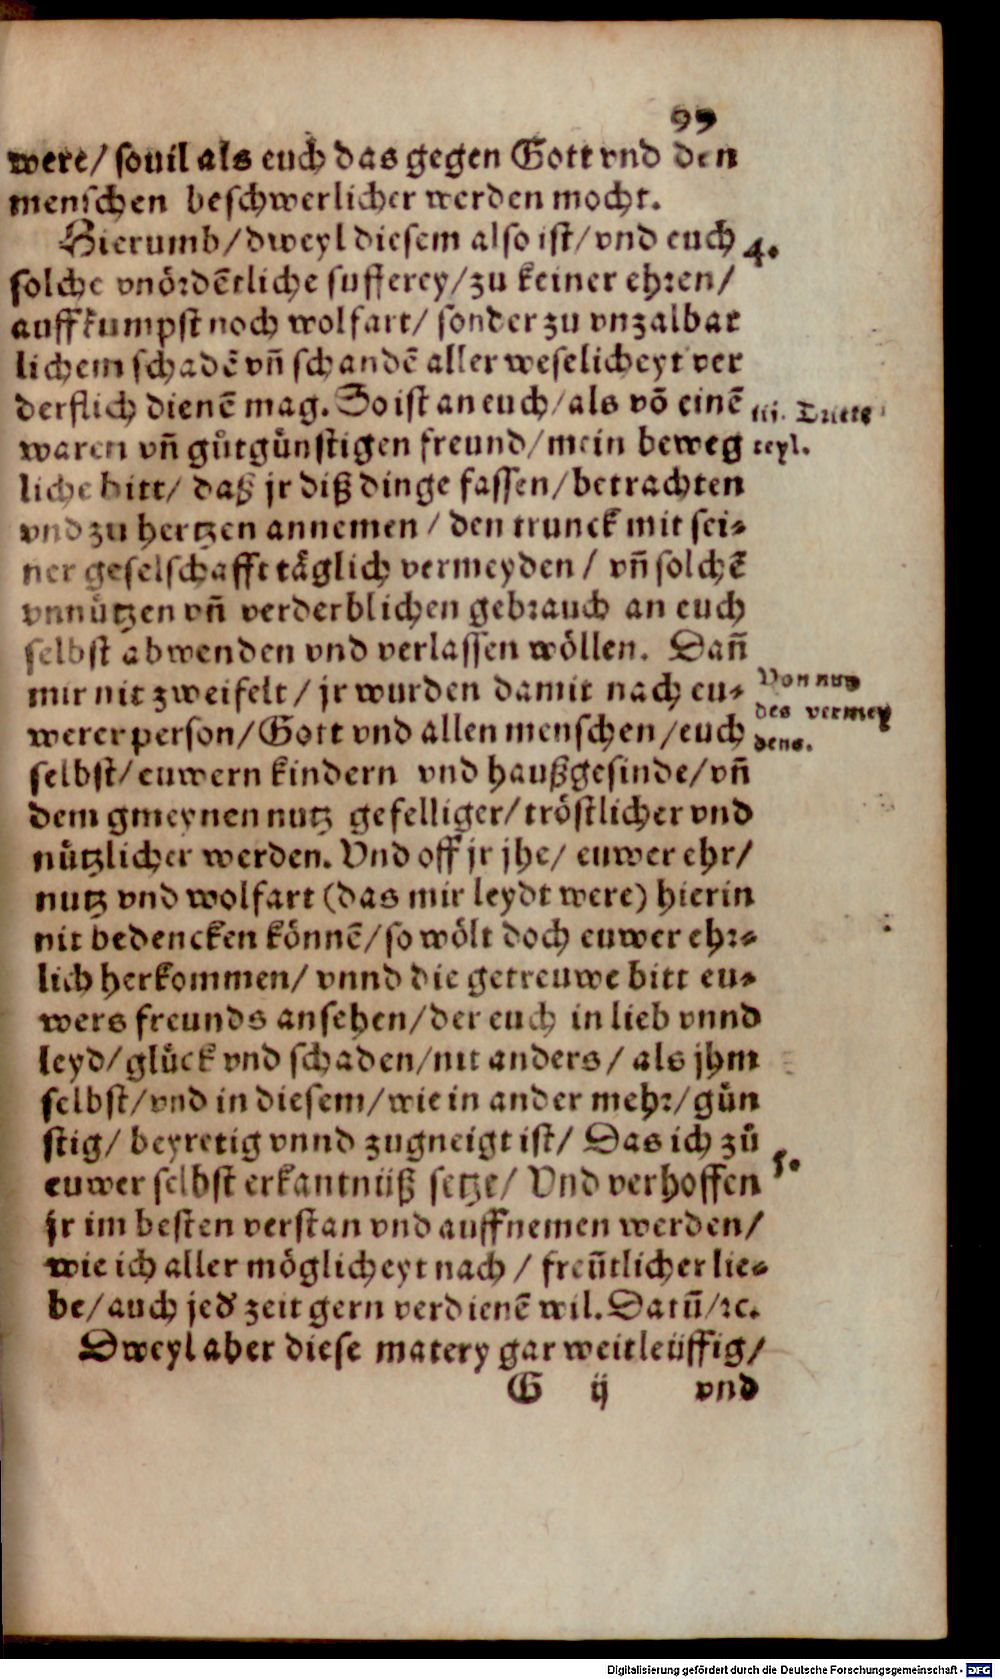 99
were/ souil als euch das gegen Gott vnd den
menschen beschwerlicher werden mocht.
Hierumb/dweyl diesem also ist/vnd euch 4.
solche vnördẽtliche sufferey/zu keiner ehren/
auffkumpst noch wolfart/ sonder zu vnzalbar
lichem schadẽ vñ schandẽ aller weselicheyt ver
derflich dienẽ mag. So ist an euch/als võ einẽ
iij. Dritte
teyl.
waren vñ gůtgünstigen freund/mein beweg
liche bitt/ daß jr diß dinge fassen/betrachten
vnd zu hertzen annemen/ den trunck mit sei-
ner geselschafft täglich vermeyden/ vñ solchẽ
vnnützen vñ verderblichen gebrauch an euch
selbst abwenden vnd verlassen wöllen. Dañ
mir nit zweifelt/ jr wurden damit nach eu-
Von nutz
des vermey
dens.
werer person/Gott vnd allen menschen/euch
selbst/euwern kindern vnd haußgesinde/vñ
dem gmeynen nutz gefelliger/tröstlicher vnd
nützlicher werden. Vnd off jr jhe/ euwer ehr/
nutz vnd wolfart (das mir leydt were) hierin
nit bedencken könnẽ/so wölt doch euwer ehr-
lich herkommen/ vnnd die getreuwe bitt eu-
wers freunds ansehen/der euch in lieb vnnd
leyd/glück vnd schaden/nit anders/ als jhm
selbst/vnd in diesem/wie in ander mehr/gün
stig/ beyretig vnnd zugneigt ist/ Das ich zů
5.
euwer selbst erkantnüß setze/ Vnd verhoffen
jr im besten verstan vnd auffnemen werden/
wie ich aller möglicheyt nach/ freũtlicher lie-
be/auch jed' zeit gern verdienẽ wil. Datũ/ꝛc.
Dweyl aber diese matery gar weitleüffig/
G ij vnd
Digitalisierung gefördert durch die Deutsche Forschungsgemeinschaft - DFG